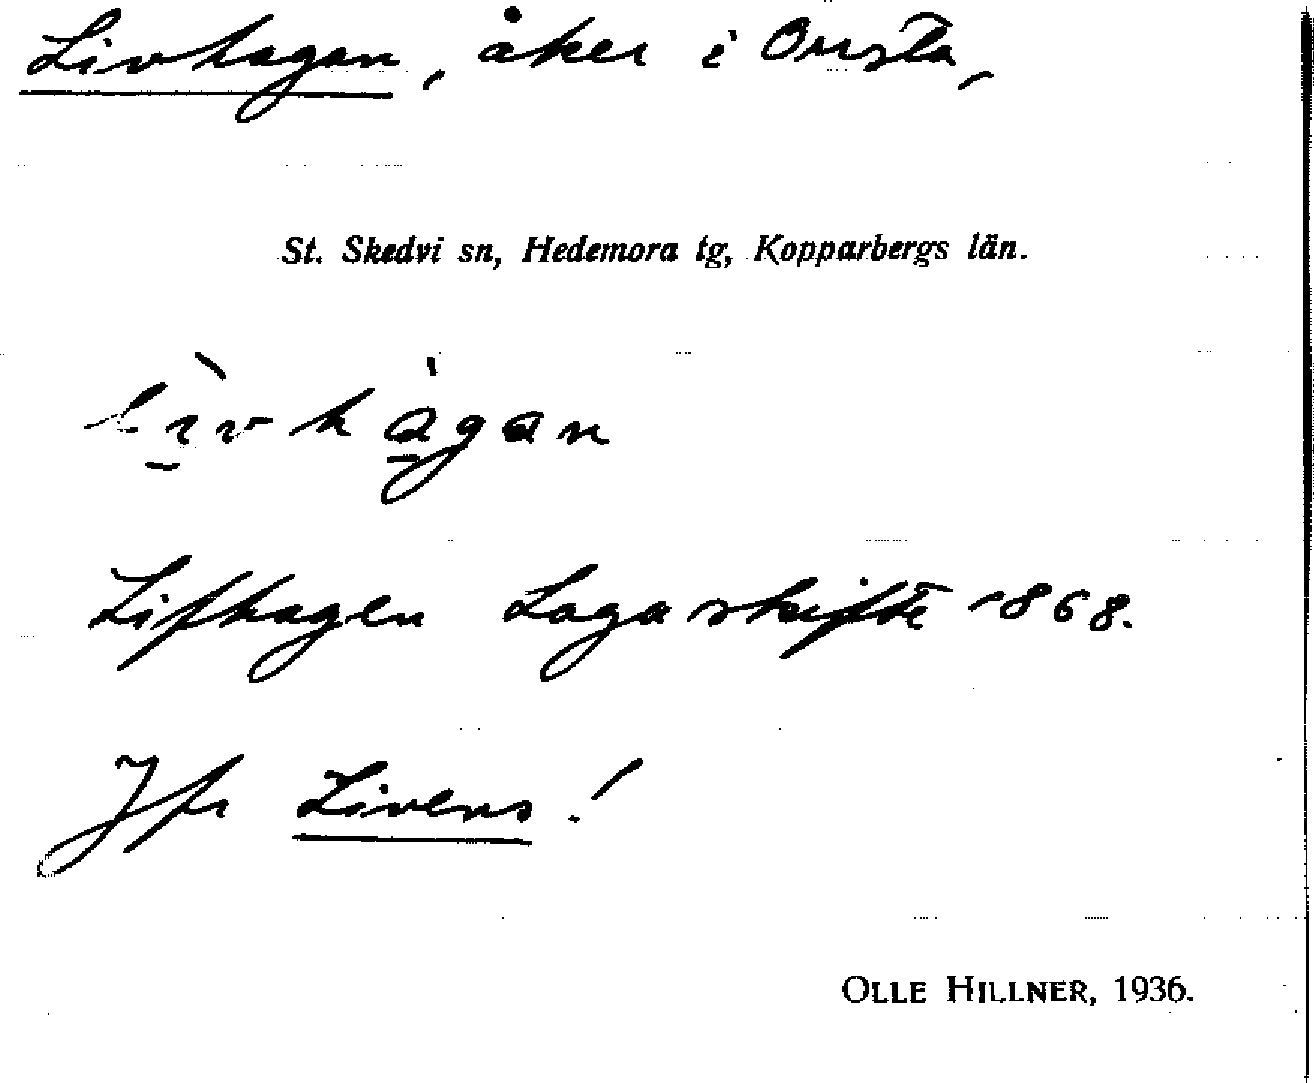 Livhagan, åker i Onsta,
St. Skedvi sn, Hedemora tg, Kopparbergs län.
lìvhàgan
Lifhagen Laga skifte 1868.
Jfr Livens!
OLLE HILLNER, 1936.